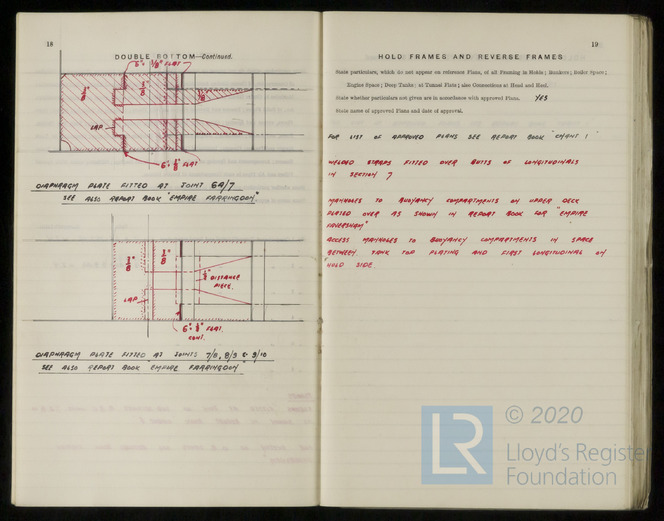 18
DOUBLE BOTTOM—Continued.
DIAPHRAGM PLATE FITTED AT JOINT 6A/7
SEE ALSO REPORT BOOK "EMPIRE FARRINGDON"
LAP
6" · ½" FLAT
3/8
LAP
½" DISTANCE
PIECE.
6" · ½" FLAT.
CONT.
DIAPHRAGM PLATE FITTED AT JOINTS 7/8, 8/9 & 9/10
SEE ALSO REPORT BOOK "EMPIRE FARRINGDON"
19
HOLD FRAMES AND REVERSE FRAMES
State particulars, which do not appear on reference Plans, of all Framing in Holds; Bunkers; Boiler Space;
Engine Space; Deep Tanks; at Tunnel Flats; also Connections at Head and Heel.
State whether particulars not given are in accordance with approved Plans. YES
State name of approved Plans and date of approval.
FOR LIST OF APPROVED PLANS SEE REPORT BOOK "CHANT 1"
WELDED STRAPS FITTED OVER BUTTS OF LONGITUDINALS
IN SECTION 7
MANHOLES TO BUOYANCY COMPARTMENTS ON UPPER DECK
PLATED OVER AS SHOWN IN REPORT BOOK FOR "EMPIRE
FAVERSHAM"
ACCESS MANHOLES TO BUOYANCY COMPARTMENTS IN SPACE
BETWEEN TANK TOP PLATING AND FIRST LONGITUDINAL ON
HOLD SIDE
LR
© 2020
Lloyd's Register
Foundation